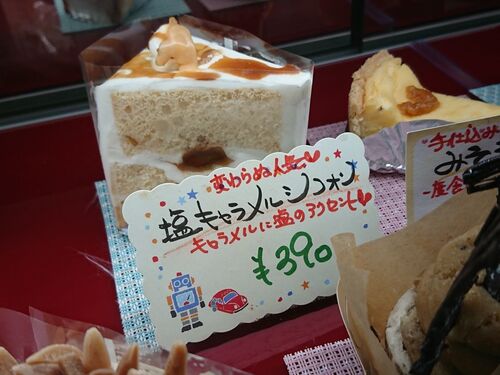 変わらぬ人気♥
塩キャラメルシフォン
キャラメルに塩のアクセント♥
¥390
手仕込み